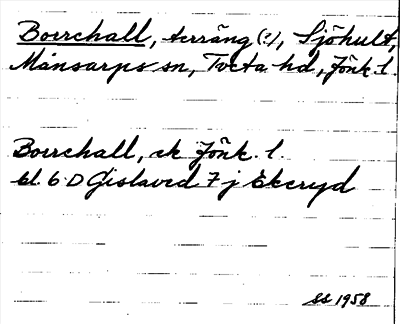 Borrehall, terräng (?), Sjöhult,
Månsarps sn, Tveta hd, Jönk. l.
Borrehall, ek Jönk. l.
bl. 6 D Gislaved 7 j Ekeryd
SS 1958